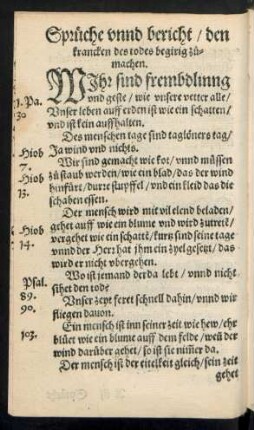 Sprüche vnnd bericht / den
krancken des todes begirig zů-
machen.
WIhr sind frembdlinng
vnd geste / wie vnsere vetter alle /
Vnser leben auff erden ist wie ein schatten /
vnd ist kein auffhalten.
Des menschen tage sind taglöners tag /
Ja wind vnd nichts.
Wir sind gemacht wie kot / vnnd müssen
zů staub werden / wie ein blad / das der wind
hinfürt / durre stupffel / vnd ein kleid das die
schaben essen.
Der mensch wird mit vil elend beladen /
gehet auff wie ein blume vnd wird zutrett /
vergehet wie ein schattē / kurtz sind seine tage
vnnd der Herr hat jhm ein zyel gesetzt / das
wird er nicht vbergehen.
Wo ist jemand der da lebt / vnnd nicht
sihet den tod?
Vnser zeyt feret schnell dahin / vnnd wir
fliegen dauon.
Ein mensch ist inn seiner zeit wie hew / ehr
blüet wie ein blume auff dem felde / weñ der
wind darüber gehet / so ist sie nim̃er da.
Der mensch ist der eitelkeit gleich / sein zeit
gehet
1. Pa.
30
Hiob
7.
Hiob
13.
Hiob
14.
Psal.
89.
90.
103.